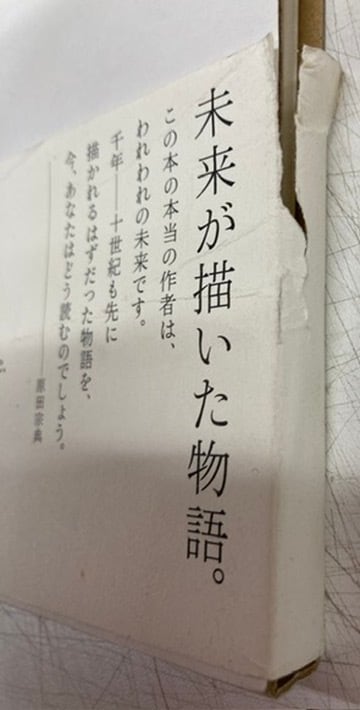 未来が描いた物語。
この本の本当の作者は、
われわれの未来です。
千年——十世紀も先に
描かれるはずだった物語を、
今、あなたはどう読むのでしょう。
——原田宗典